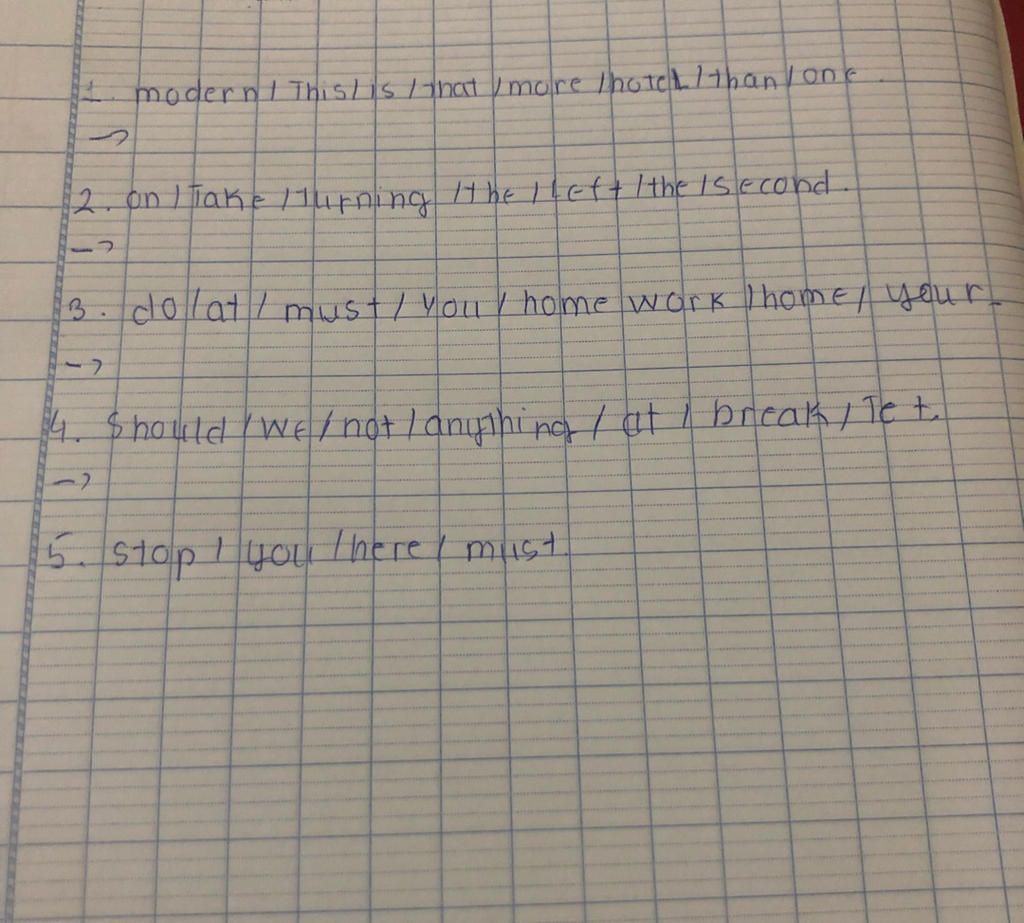 1. modern / This / is / that / more / hotel / than / one.
→
2. on / Take / turning / the / left / the / second.
→
3. do / at / must / you / home work / home / your
→
4. Should / we / not / anything / at / break / Tet.
→
5. stop / you / here / must